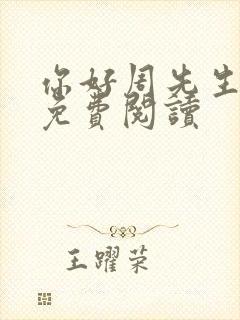 你好周先生
免費閱讀
王躍荣